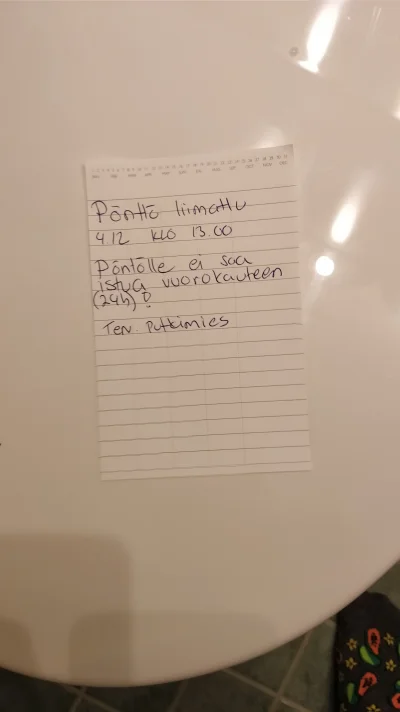 Pönttö liimattu
4.12 klo 13.00
Pöntölle ei saa
istua vuorokauteen
(24h) !
Terv. Putkimies